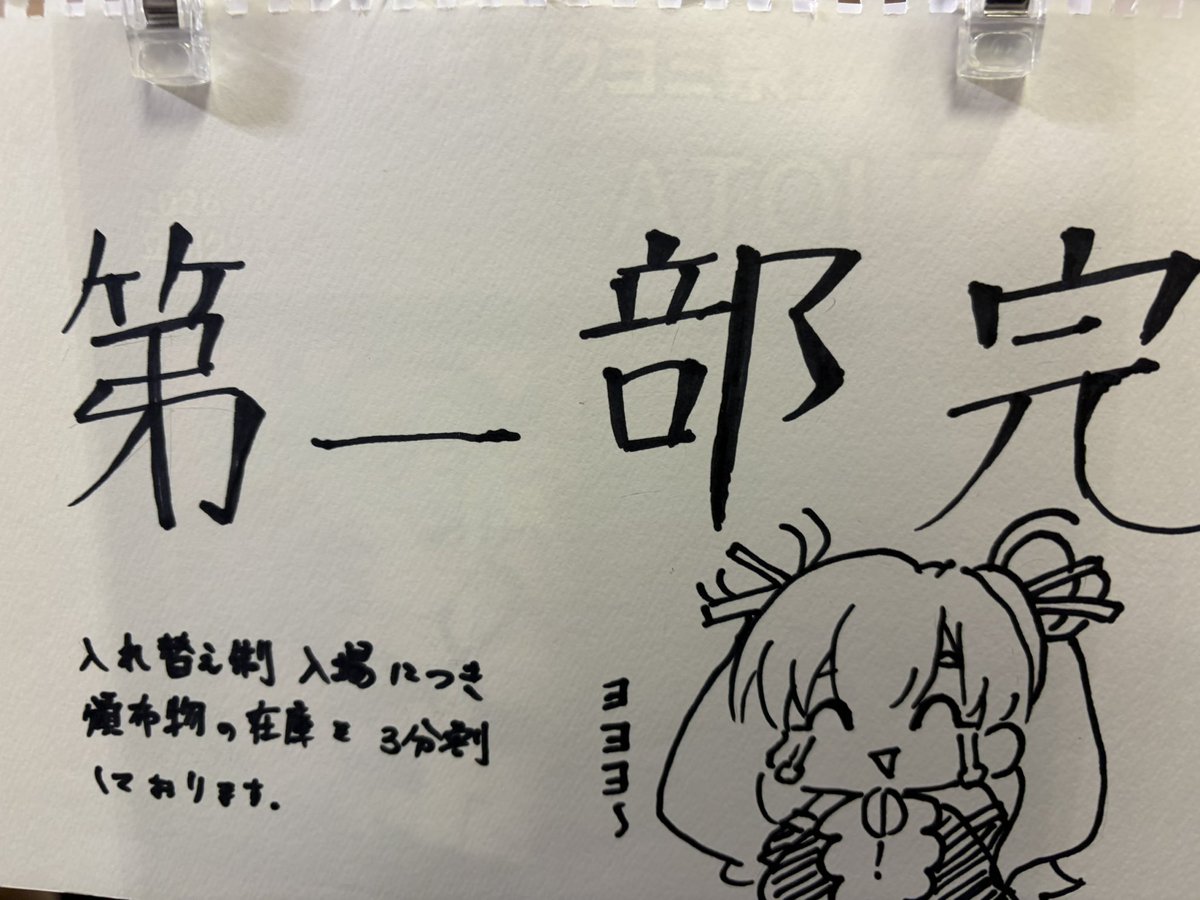 第一部完
入れ替え制 入場につき
頒布物の在庫を3分割
しております。
ヨヨヨ〜
!